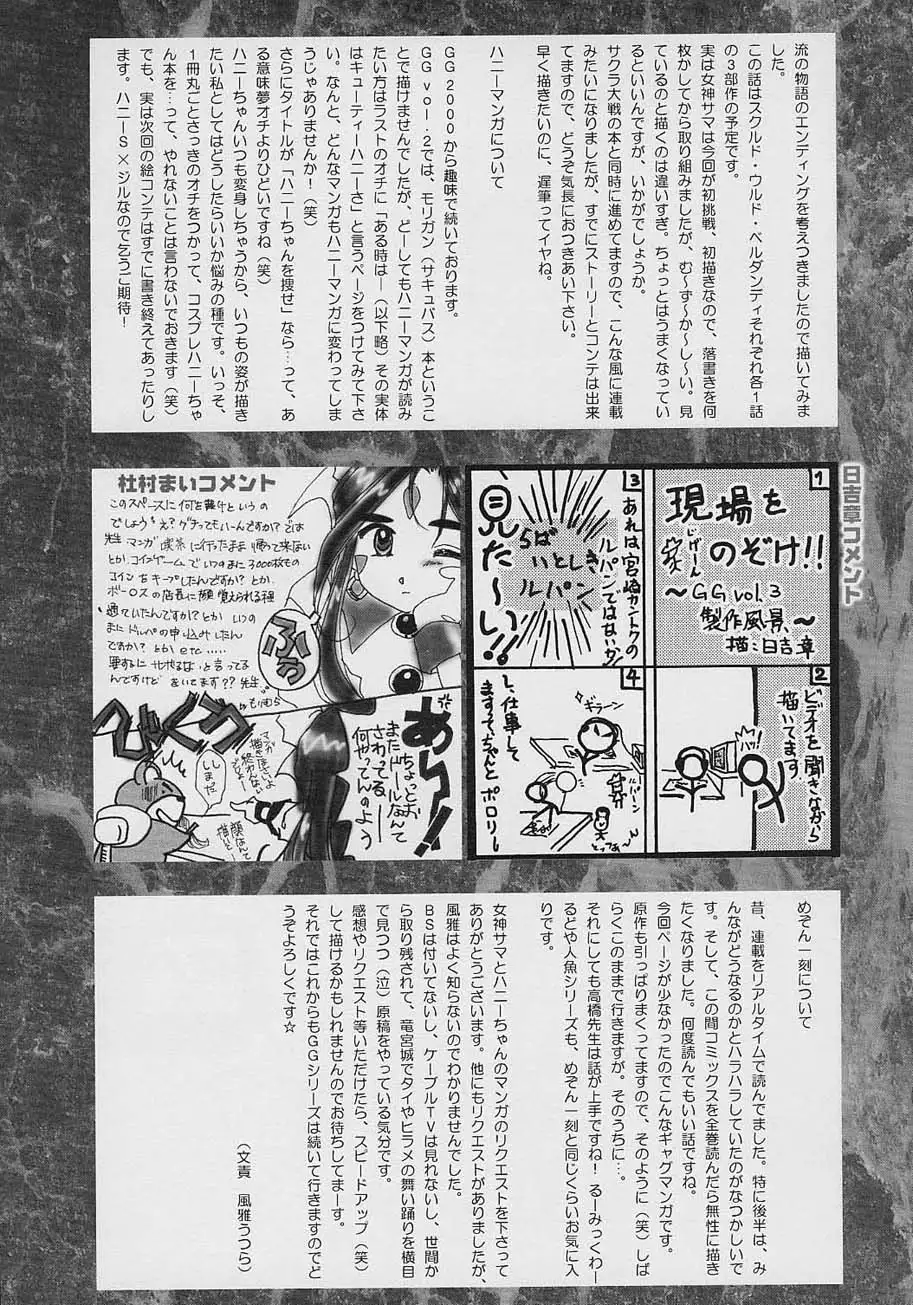 流の物語のエンディングを考えつきましたので描いてみま
した。
この話はスクルド・ウルド・ベルダンディそれぞれ各1話
の3部作の予定です。
実は女神サマは今回が初挑戦、初描きなので、落書きを何
枚かしてから取り組みましたが、む〜ず〜か〜し〜い。見
ているのと描くのは違いすぎ。ちょっとはうまくなってい
るといいんですが、いかがでしょうか。
サクラ大戦の本と同時に進めてますので、こんな風に連載
みたいになりましたが、すでにストーリーとコンテは出来
てますので、どうぞ気長におつきあい下さい。
早く描きたいのに、遅筆ってイヤね。
ハニーマンガについて
GG 2000から趣味で続いております。
GG vol.2では、モリガン（サキュバス）本というこ
とで描けませんでしたが、どーしてもハニーマンガが読み
たい方はラストのオチに「ある時は―（以下略）その実体
はキューティーハニーさ」と言うページをつけてみて下さ
い。なんと、どんなマンガもハニーマンガに変わってしま
うじゃありませんか！（笑）
さらにタイトルが「ハニーちゃんを捜せ」なら…って、あ
る意味夢オチよりひどいですね（笑）
ハニーちゃんいつも変身しちゃうから、いつもの姿が描き
たい私としてはどうしたらいいか悩みの種です。いっそ、
1冊丸ごとさっきのオチをつかって、コスプレハニーちゃ
ん本を…って、やれないことは言わないでおきます（笑）
でも、実は次回の絵コンテはすでに書き終えてあったりし
ます。ハニーS×ジルなのでとうご期待！
日吉章コメント
1
現場を
のぞけ!!
〜GG vol.3
製作風景〜
描：日吉章
2
ビデオを聞きながら
描いてます
3
あれは宮崎カントクの
ルパンではないか
らば
いとしき
ルパン
見た〜い!!
4
ギラーン
ルパーン
とっつぁ〜ん
し、仕事して
ますってちゃんと
ポロリー
杜村まいコメント
このスペースに何を書けというの
でしょうね？グチってもいーんですか？とは
先生マンガ喫茶に行ったまま帰って来ない
とかコインゲームでいつのまに3000枚もの
コインをキープしたんですか？とか
ボーロスの店長に顔覚えられる程
通っていたんですか？とかいつの
まにドルパの申し込みしたん
ですか？とかetc.....
ふぅ
あらっ!!
ちょっとお
またドールなんて
さわってる
何やってんのよう
びくぅっ
ししまった
めぞん一刻について
昔、連載をリアルタイムで読んでました。特に後半は、み
んながどうなるのかとハラハラしていたのがなつかしいで
す。そして、この間コミックスを全巻読んだら無性に描き
たくなりました。何度読んでもいい話ですね。
今回ページが少なかったのでこんなギャグマンガです。
原作も引っぱりまくってますので、そのように（笑）しば
らくこのままで行きますが。そのうちに…。
それにしても高橋先生は話が上手ですね！るーみっくわー
るどや人魚シリーズも、めぞん一刻と同じくらいお気に入
りです。
女神サマとハニーちゃんのマンガのリクエストを下さって
ありがとうございます。他にもリクエストがありましたが、
風雅はよく知らないのでわかりませんでした。
BSは付いてないし、ケーブルTVは見れないし、世間か
ら取り残されて、竜宮城でタイやヒラメの舞い踊りを横目
で見つつ（泣）原稿をやっている気分です。
感想やリクエスト等いただけたら、スピードアップ（笑）
して描けるかもしれませんのでお待ちしてまーす。
それではこれからもGGシリーズは続いて行きますのでど
うぞよろしくです☆
（文責　風雅うつら）